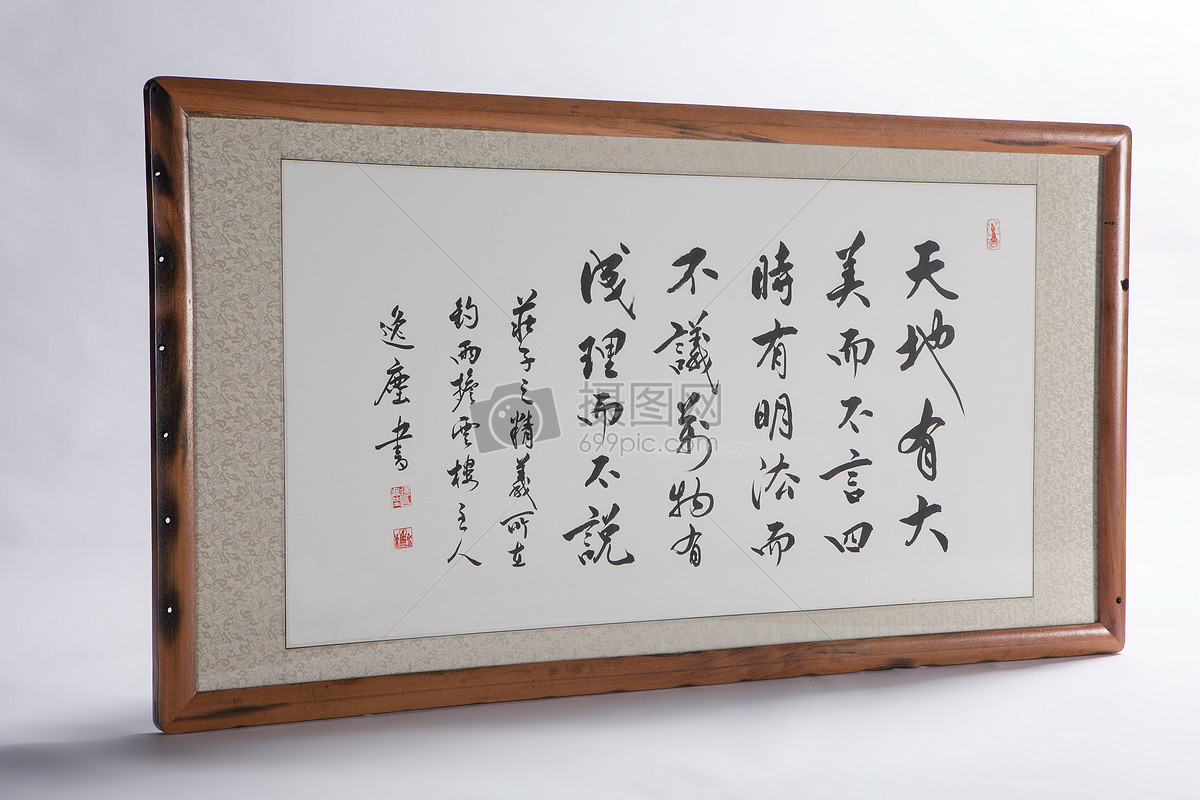 天地有大
美而不言四
時有明法而
不議萬物有
成理而不説
莊子之精義所在
釣雨擔雲樓主人
逸塵書
摄图网
699pic.com